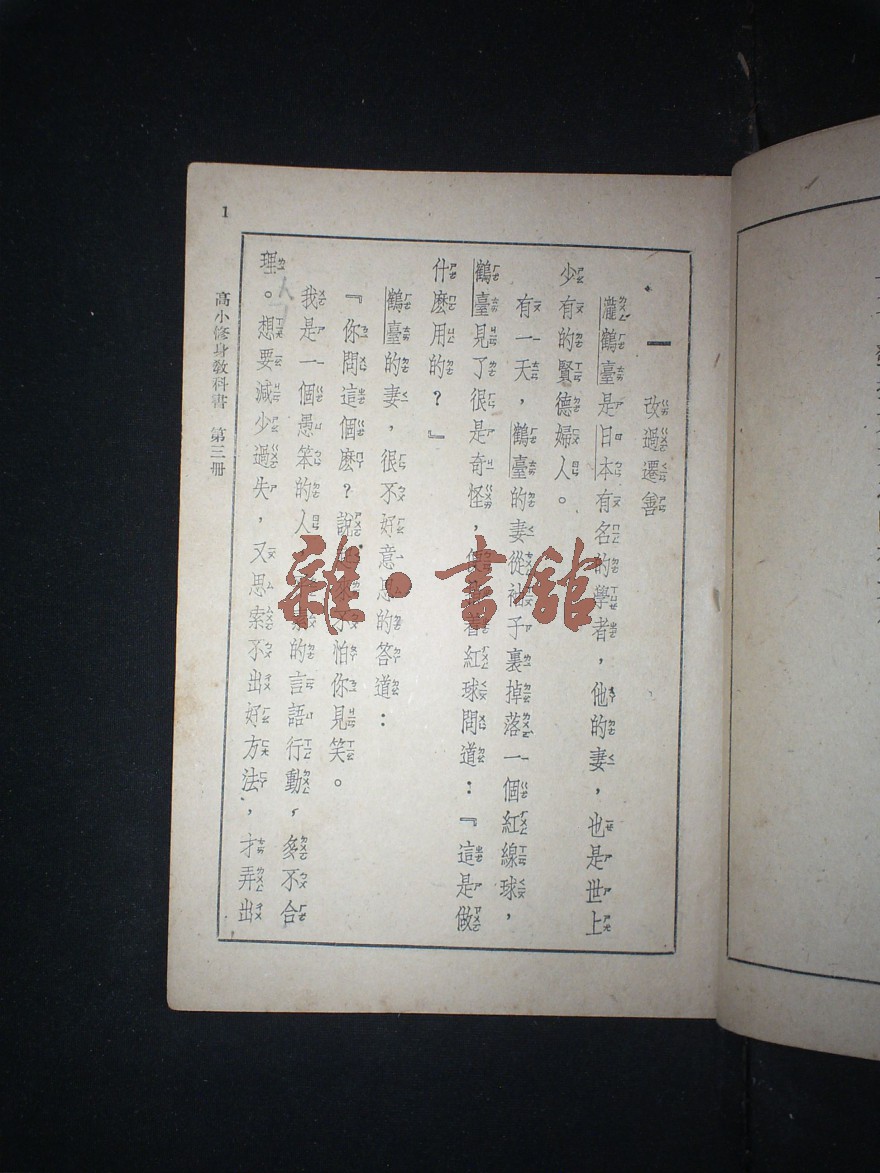 一 改過遷善
瀧鶴臺是日本有名的學者，他的妻，也是世上
少有的賢德婦人。
有一天，鶴臺的妻從袖子裏掉落一個紅線球，
鶴臺見了很是奇怪，便 着紅球問道：『這是做
什麽用的？』
鶴臺的妻，很不好意思的答道：
『你問這個麽？說 來不怕你見笑。
我是一個愚笨的人 的言語行動，多不合
理。想要減少過失，又思索不出好方法，才弄出
高小修身教科書 第三冊
1
雜·書館